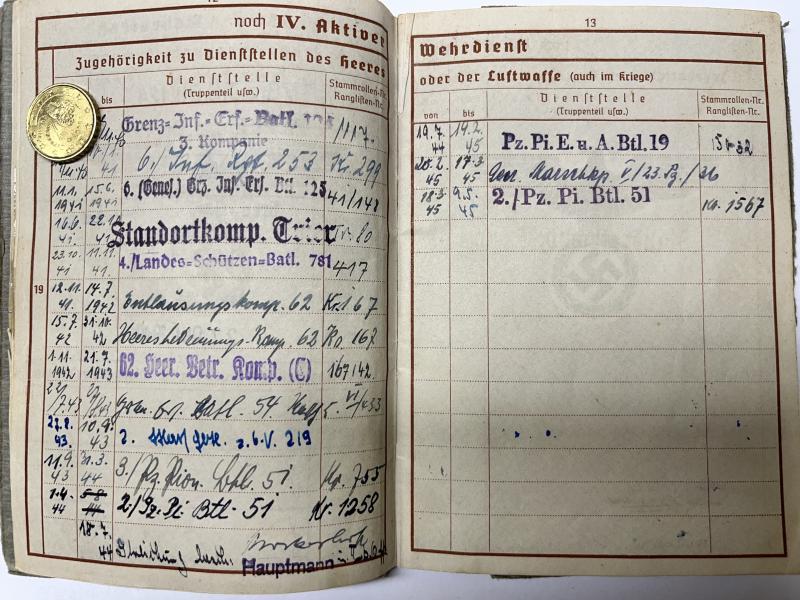 12
noch IV. Aktiver
Zugehörigkeit zu Dienststellen des Heeres
bis
Dienststelle
(Truppenteil usw.)
Stammrollen-Nr.
Ranglisten-Nr.
Grenz-Inf.-Ers.-Batl. 125
3. Kompanie
/117.
41
6./Inf. Rgt. 253 Nr 299
11.1. 1941 15.6. 1941 6. (Genes.) Grz. Inf. Ers. Btl. 125 41/148
16.6. 41 22.10. 41 Standortkomp. Trier 80
23.10. 41 11.11. 41. 4./Landes-Schützen-Batl. 781 417
19
12.11. 41. 14.7. 1942 Entlausungskomp. 62 Nr. 167
15.7. 42 31.10. 42 Heeresbetreuungs-Komp. 62 No 167
1.11. 1942 21.7. 1943 62. Heer. Betr. Komp. (C) 167/42.
7.43 Batl. 54 433
27.8. 43. 10.9. 43 2. z.b.V. 219
11.9. 43 31.3. 44 3./Pz. Pion. Btl. 51 Nr. 755
1.4. 44 2./Pz. Pi. Btl. 51 Nr. 1258
18.7. 44
Hauptmann u.
13
Wehrdienst
oder der Luftwaffe (auch im Kriege)
von
bis
Dienststelle
(Truppenteil usw.)
Stammrollen-Nr.
Ranglisten-Nr.
19.7. 44 14.2. 45 Pz. Pi. E. u. A. Btl. 19
20.2. 45 17.3. 45 Gen. Marschkp. V/23. Pz./36
18.3. 45 9.5. 45 2./Pz. Pi. Btl. 51 Nr. 1567